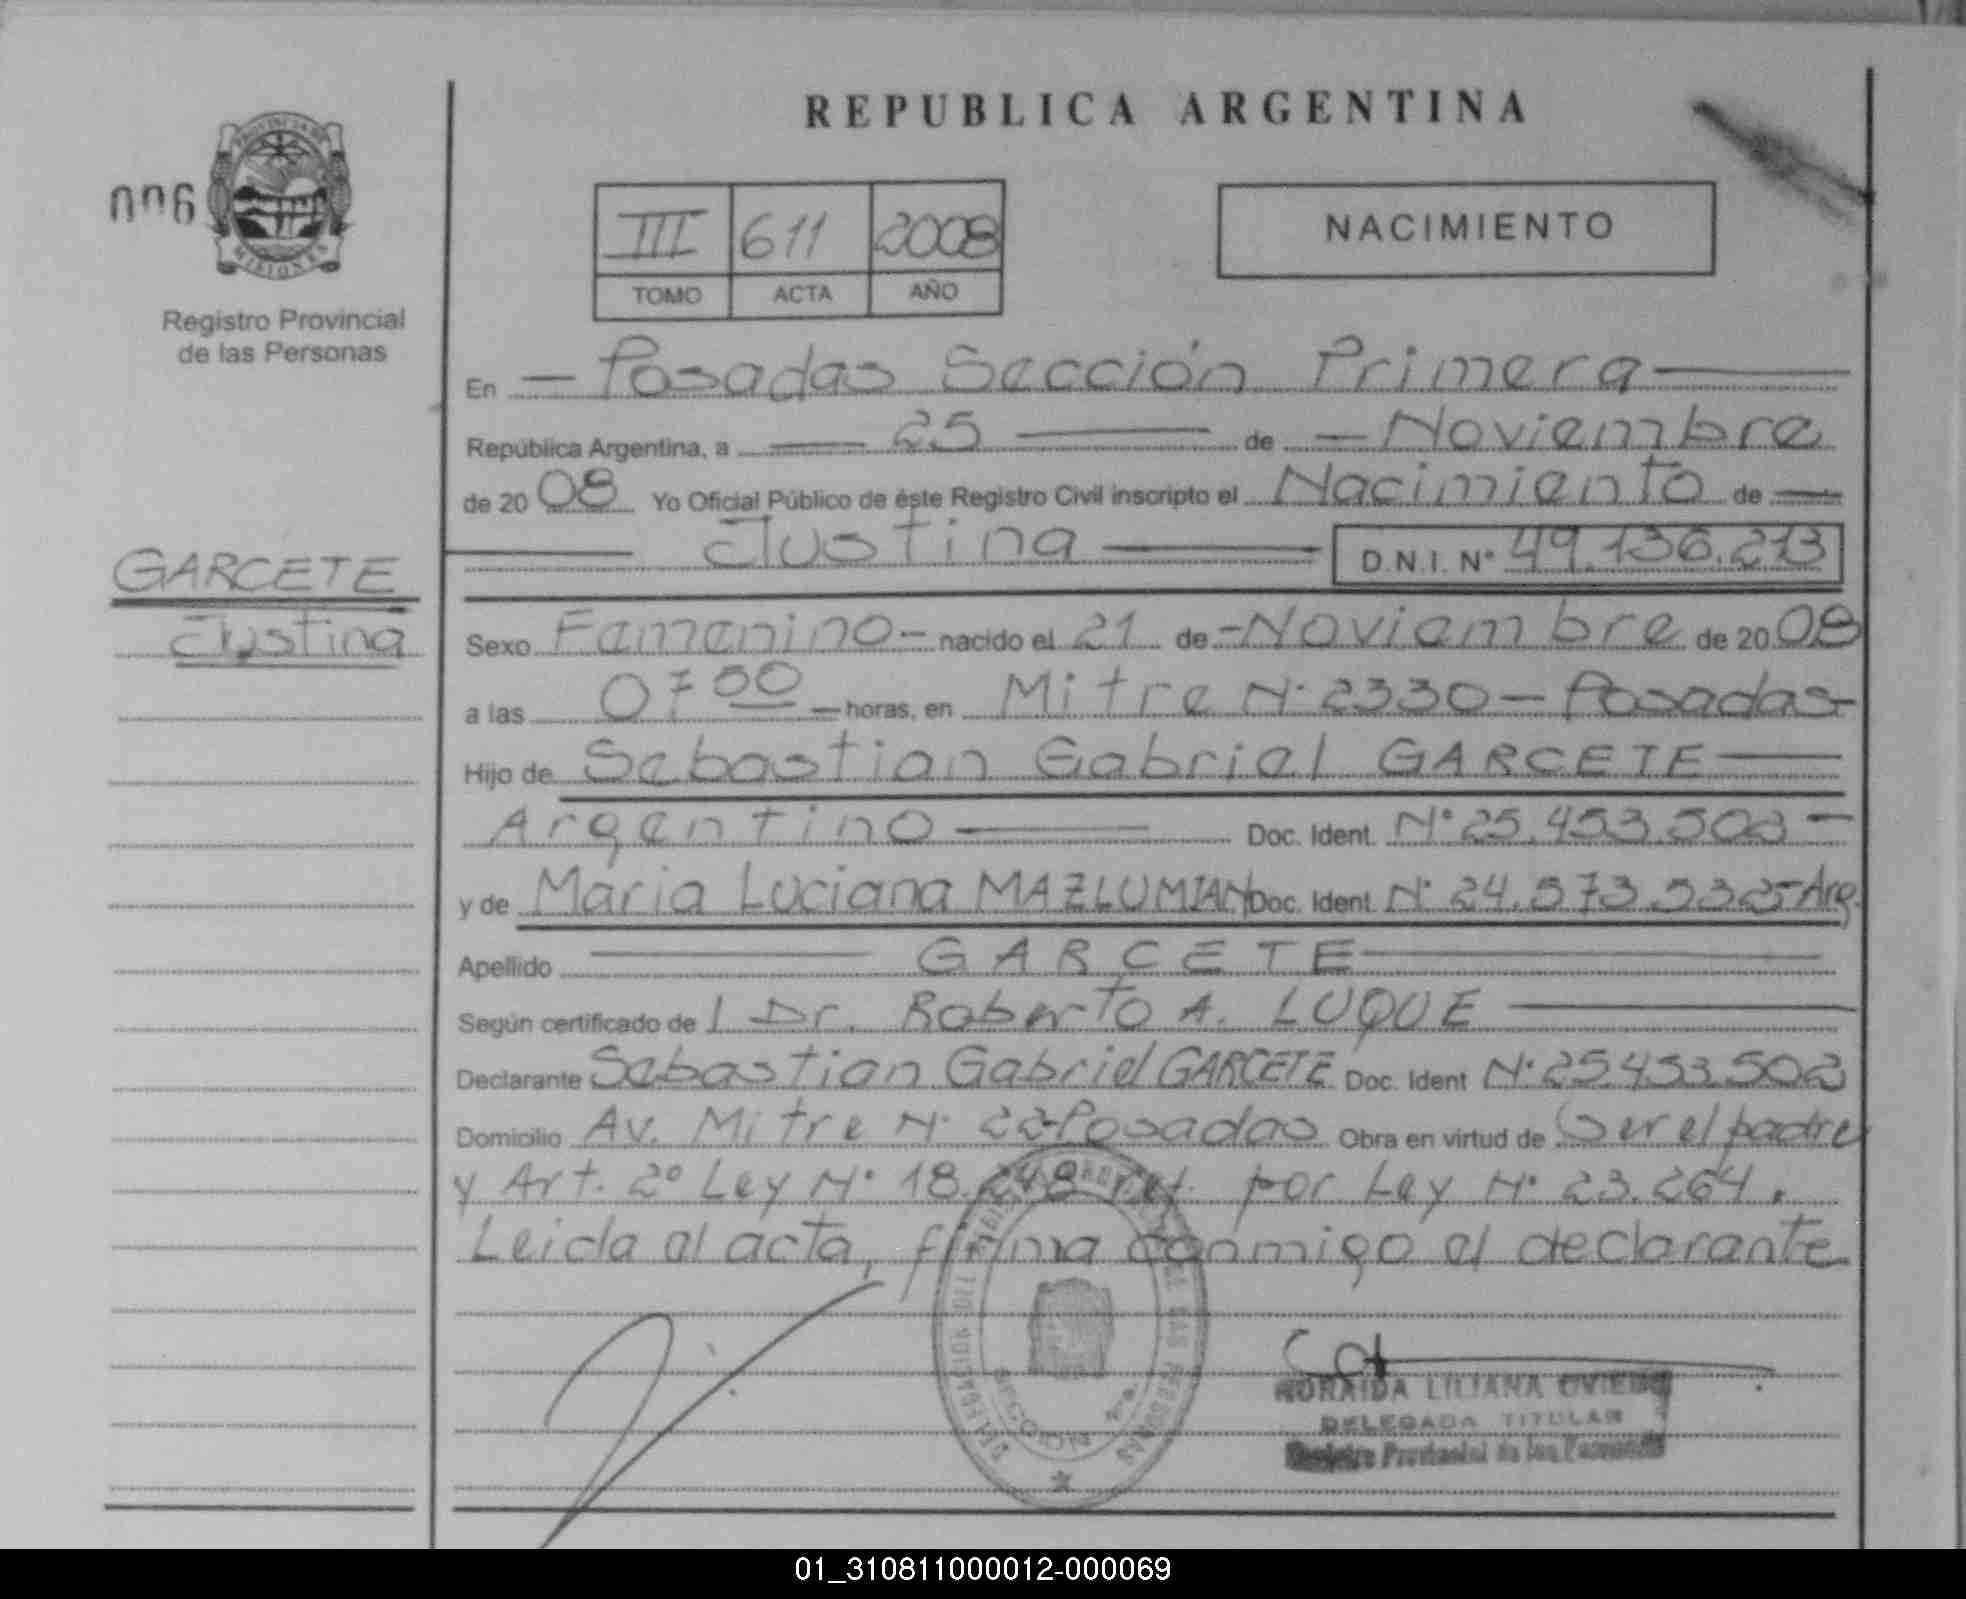 REPUBLICA ARGENTINA
006
PROVINCIA DE
MISIONES
Registro Provincial
de las Personas
III 611 2008
TOMO ACTA AÑO
NACIMIENTO
En — Posadas Sección Primera —
República Argentina, a — 25 — de — Noviembre
de 20 08 Yo Oficial Público de éste Registro Civil inscripto el Nacimiento de —
— Justina — D.N.I. N° 49.136.213
GARCETE
Justina
Sexo Femenino — nacido el 21 de — Noviembre de 20 08
a las 07 50 — horas, en Mitre N° 2330 — Posadas —
Hijo de Sebastian Gabriel GARCETE —
Argentino — Doc. Ident. N° 25.453.502 —
y de Maria Luciana MAZLUMIAN Doc. Ident. N° 24.573.532 - Arg.
Apellido — GARCETE —
Según certificado de l Dr. Roberto A. LUQUE —
Declarante Sebastian Gabriel GARCETE Doc. Ident N° 25.453.502
Domicilio Av. Mitre N° Posadas Obra en virtud de Ser el padre
y Art. 2° Ley N° 18.248 ref. por Ley N° 23.264.
Leida al acta, firma conmigo el declarante
DE LAS PERSONAS
SECCION 1ra.
LILIANA OVIEDO
DELEGADA TITULAR
Registro Provincial de las Personas
01_310811000012-000069